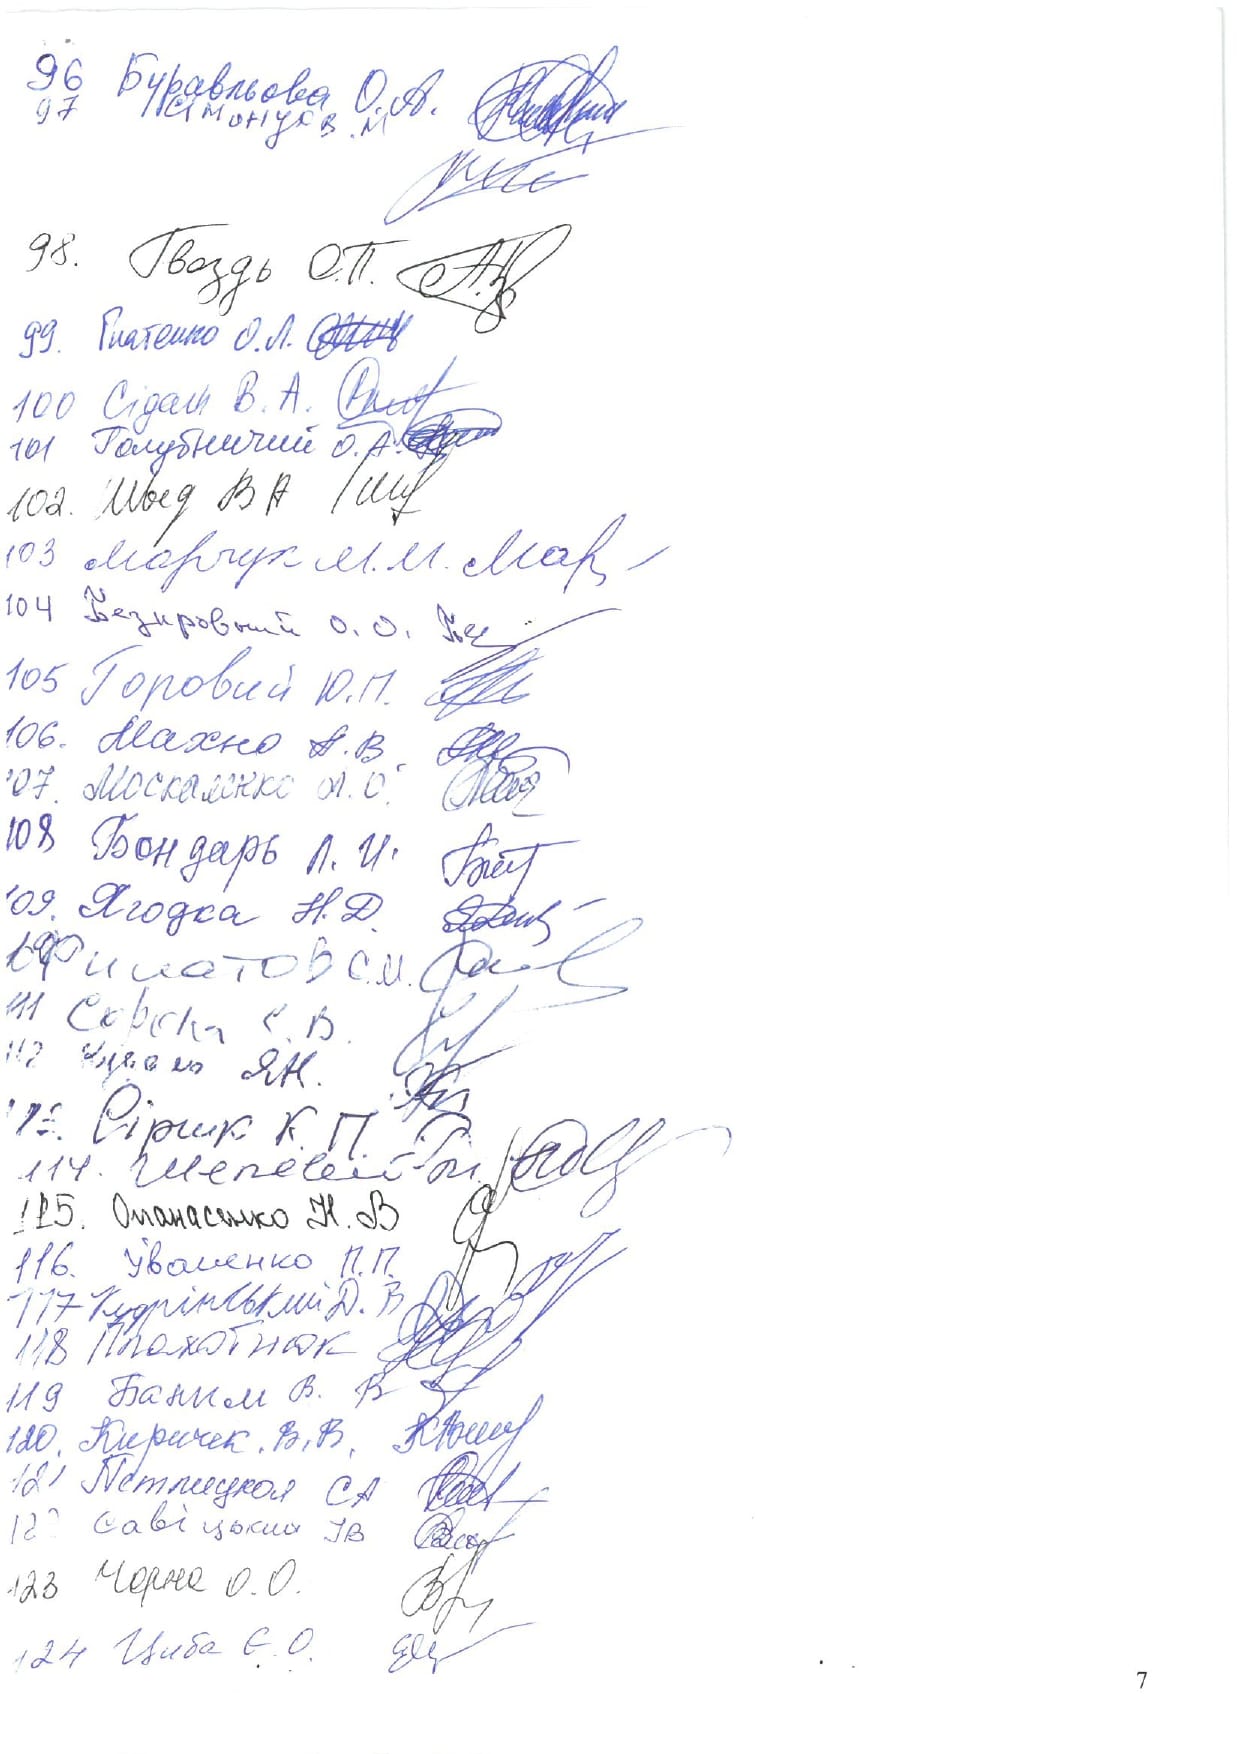 96 Буравльова О.А.
97 В.М
98. Гвоздь О.П.
99. Гнатенко О.Л.
100 Сідаш В.А.
101 Голубничий О.А.
102. Швед В А
103 Марчук М.М. Мар
104 О.О.
105 Горовий Ю.П.
106. Махно А.В.
107. Москаленко О.
108 Бондарь Л.И.
109. Ягодка Н.Д.
Филатов С.М.
111 В.
112 Я.Н.
Сірик К.П.
114.
115. Опанасенко Н.В
116. П.П.
117 Кудрінський Д.В
118 Плахотнюк
119 В. В
120. Киричек.В.В.
121 Петлицкая СА
Савіцький ІВ
123 Чорна О.О.
124 Циба Є.О.
7